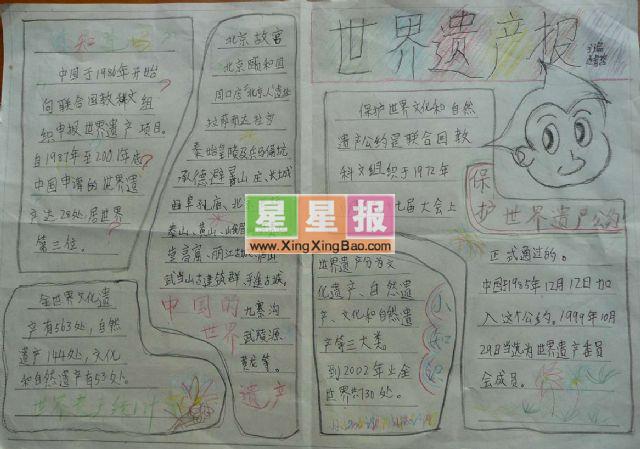 世界遗产报
你知道吗?
中国于1986年开始
向联合国教科文组
织申报世界遗产项目。
自1987年至2001年底
中国申请的世界遗
产达28处居世界
第三位。
全世界文化遗
产有563处,自然
遗产144处,文化
和自然遗产有53处。
北京故宫
北京颐和园
周口店"北京人"遗址
拉萨布达拉宫
秦始皇陵及兵马俑坑
承德避暑山庄、长城
曲阜孔庙、北
泰山、黄山、峨眉
武当山古建筑群、平遥古城。
九寨沟
武陵源
黄龙等。
中国的
世界
遗产
保护世界文化和自然
遗产公约是联合国教
科文组织于1972年
七届大会上
保护世界遗产公约
正式通过的。
中国1985年12月12日加
入这个公约。1999年10月
29日当选为世界遗产委员
会成员。
世界遗产分为文
化遗产、自然遗
产、文化和自然遗
产等三大类
到2002年止全
世界共730处。
小知识
星星报
www.XingXingBao.com